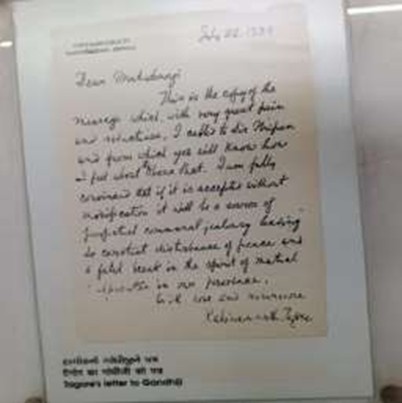 Dear Mahatmaji
This is the copy of the
message which with very great pain
and reluctance, I cabled to Sir Nripen
and from which you will know how
I feel about the
I am fully
convinced that if it is accepted without
modification it will be a source of
perpetual communal jealousy leading
to constant disturbance of peace and
a fatal break in the spirit of mutual
in our province.
With love and reverence
Rabindranath Tagore
ટાગોરનો ગાંધીજીને પત્ર
टैगोर का गांधीजी को पत्र
Tagore's letter to Gandhiji